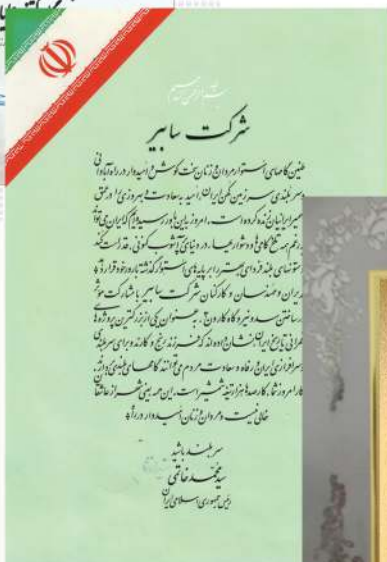 بسم الله الرحمن الرحیم
شرکت سابیر
طنین گامهای استوار مردان و زنان سخت کوش و امیدوار در راه آبادانی
و سربلندی سرزمین کهن ایران، امید به سعادت و بهروزی را در عمق
ضمیر ایرانیان زنده کرده است. امروز به این باور رسیده‌ایم که ایران می‌تواند
به رغم همه تلخ کامی‌ها و دشواریها، در دنیای پرآشوب کنونی، قد راست کند
و ستونهای بلند فردای بهتر را بر پایه‌های استوار گذشته بارور خود قرار دهد
مدیران و مهندسان و کارکنان شرکت سابیر با مشارکت مؤثر
در ساختن سد و نیروگاه کارون ۳، به عنوان یکی از بزرگترین پروژه‌های
عمرانی تاریخ ایران نشان داده‌اند که فرزند رنج و کارند و برای سربلندی
و سرافرازی ایران و رفاه و سعادت مردم می‌توانند گامهای بلندی بردارند.
کار امروز شما، کار صدها هزار تیشه و شمشیر است. این همه بی‌شعر از عاشقان
خالی نیست و مردان و زنان امیدوار دارد
سربلند باشید
سید محمد خاتمی
رئیس جمهوری اسلامی ایران